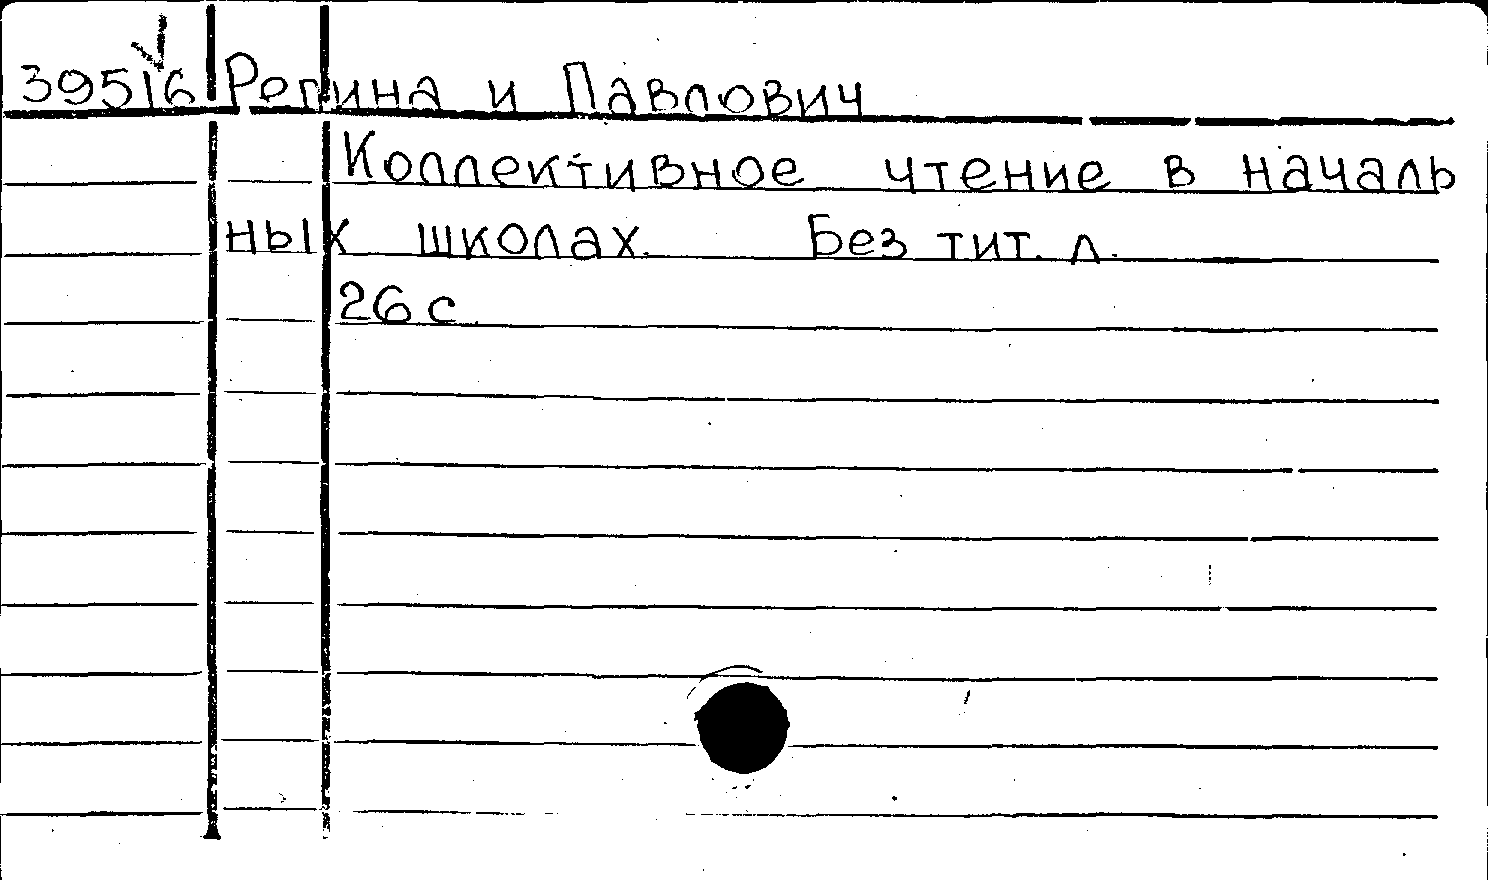 39516 Регина и Павлович
Коллективное чтение в началь
ных школах. Без тит. л.
26 с.